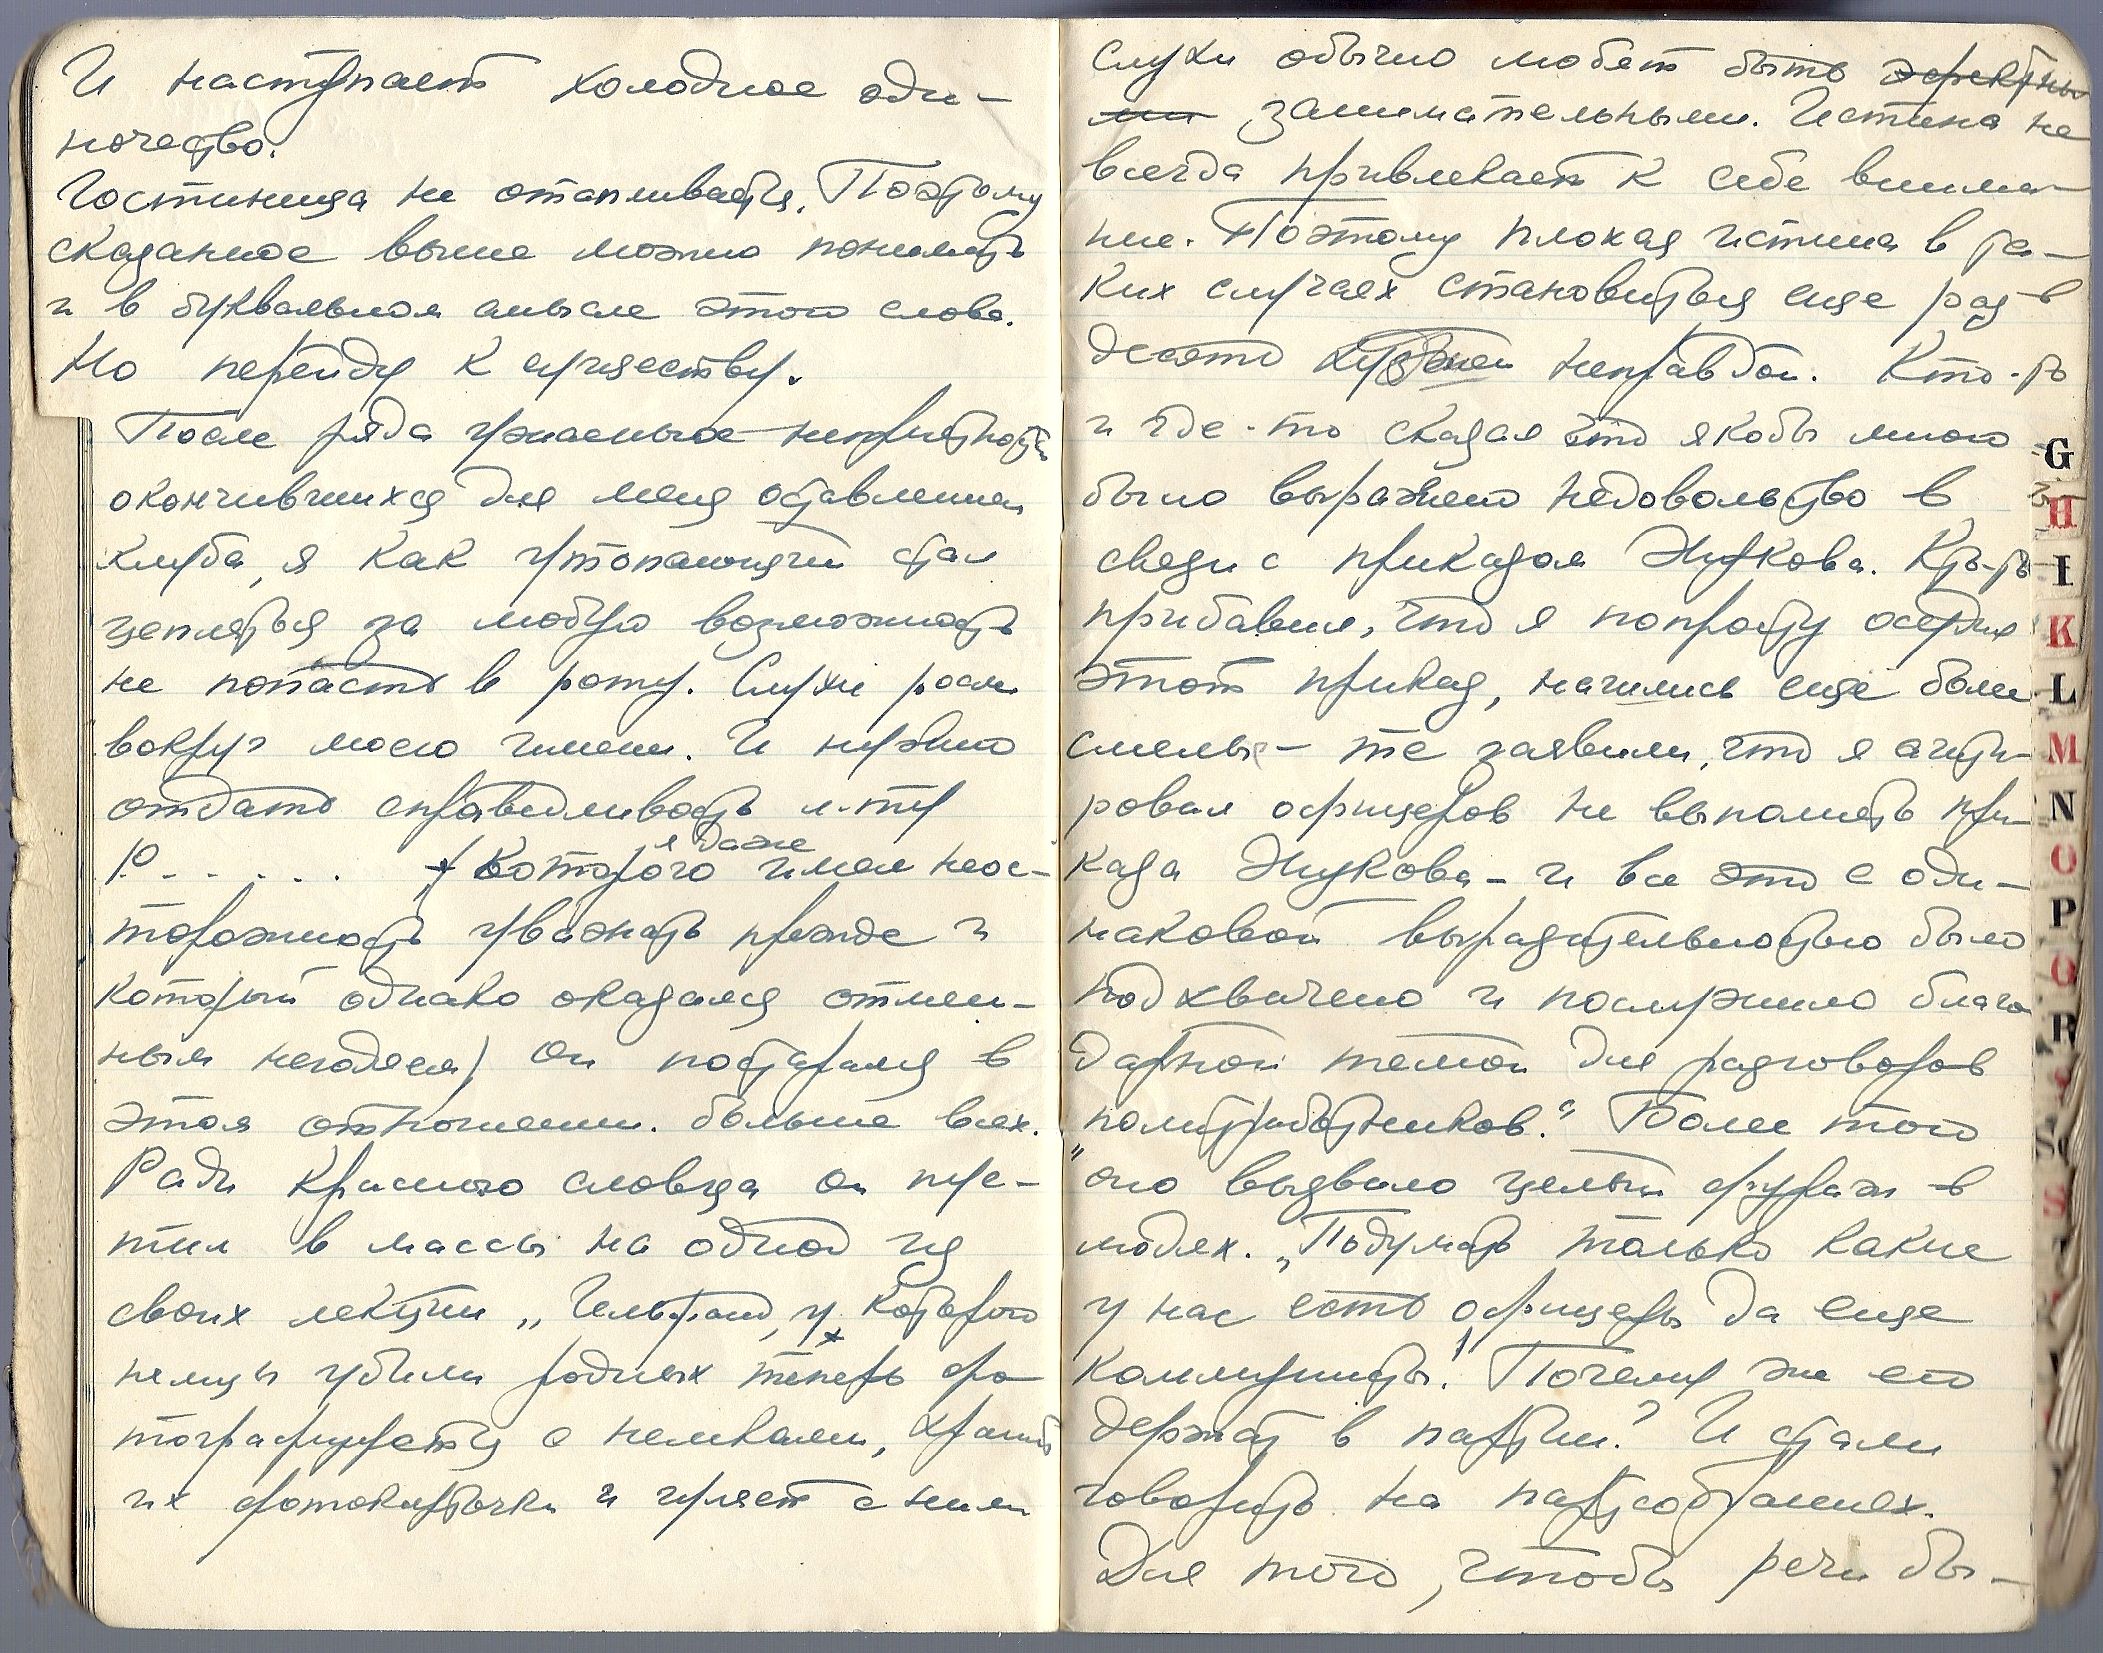 И наступает холодное оди-
ночество.
Гостиница не отапливается. Поэтому
сказанное выше можно понимать
и в буквальном смысле этого слова.
Но перейду к существу.
После ряда ужасных неприятностей
окончившихся для меня оставлением
клуба, я как утопающий стал
цепляться за любую возможность
не попасть в роту. Слухи росли
вокруг моего имени. И нужно
отдать справедливость л-ту
Р. . . . . . (которого я даже имел неос-
торожность уважать прежде и
который однако оказался отмен-
ным негодяем) он постарался в
этом отношении больше всех.
Ради красного словца он пус-
тил в массы на одной из
своих лекций „Гельфанд, у которого
немцы убили родных теперь фо-
тографируется с немками, хранит
их фотокарточки и гуляет с ними
Слухи обычно любят быть эффектны-
ми занимательными. Истина не
всегда привлекает к себе внима-
ние. Поэтому плохая истина в та-
ких случаях становиться еще раз в
десять худшей неправдой. Кто-то
и где-то сказал что якобы мною
было выражено недовольство в
связи с приказом Жукова. Кто-то
прибавил, что я попросту осудил
этот приказ, нашлись еще более
смелые - те заявили, что я агити-
ровал офицеров не выполнять при-
каза Жукова - и все это с оди-
наковой выразительностью было
подхвачено и послужило благо
дарной темой для разговоров
„политработников." Более того
оно вызвало целый фураж в
людях. „Подумать только какие
у нас есть офицеры да еще
коммунисты! Почему же его
держат в партии? И стали
говорить на партсобраниях.
Для того, чтобы речи бы-
G
H
I
K
L
M
N
O
P
Q
R
S